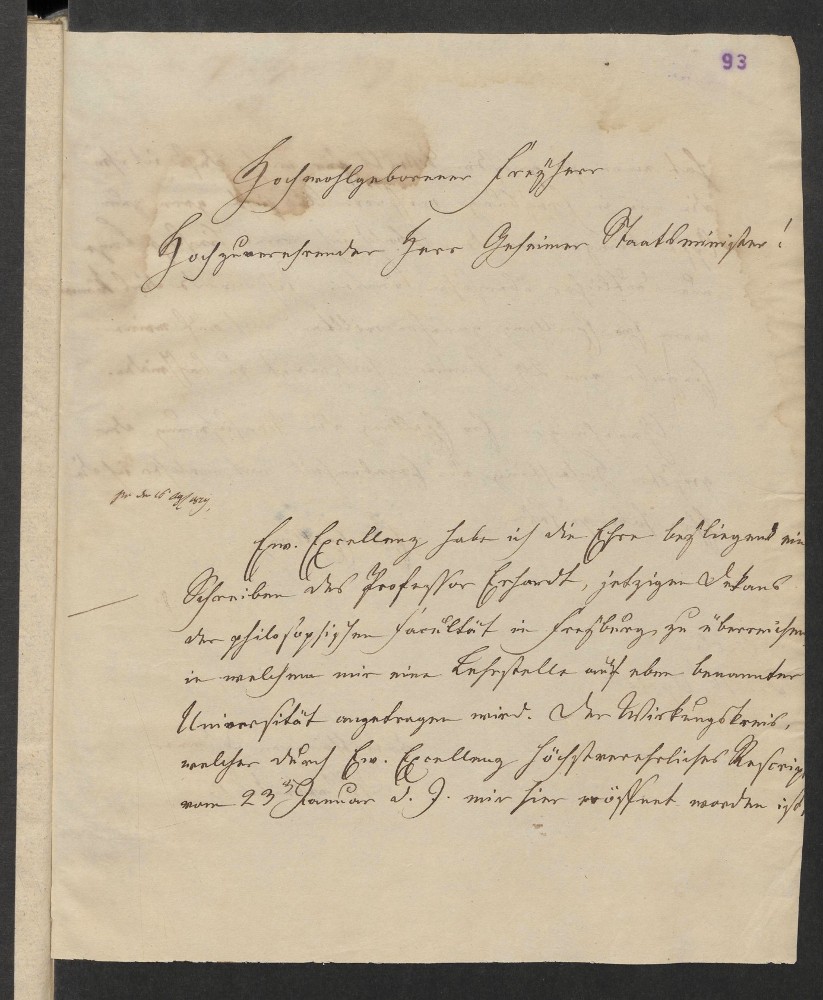 93
Hochwohlgeborener Freyherr
Hochzuverehrender Herr Geheimer Staatsminister!
Ew. Excellenz habe ich die Ehre beyliegend ein
Schreiben des Professor Erhardt, jetzigen Dekans
der philosophischen Facultät in Freyburg, zu überreichen
in welchem mir eine Lehrstelle auf eben benannter
Universität angetragen wird. Der Wirkungskreis,
welcher durch Ew. Excellenz höchstverehrliches Rescript
vom 23 Januar d. J. mir hier eröffnet worden ist,